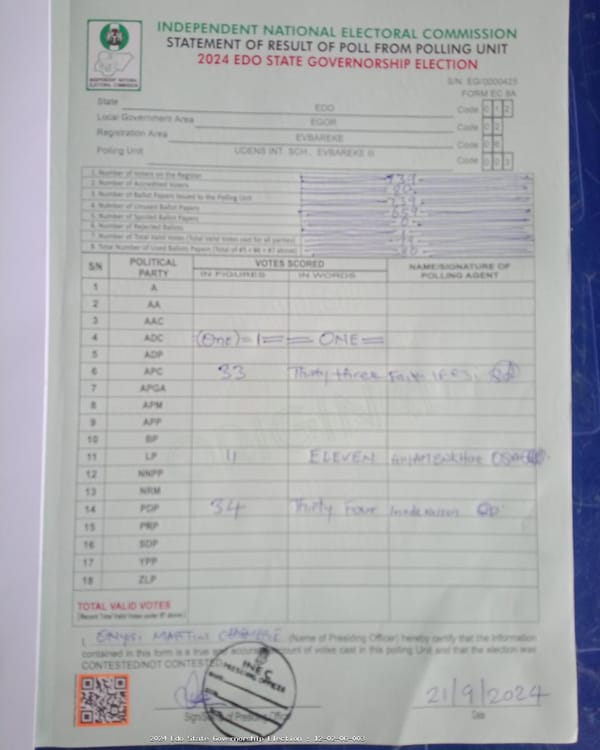 INDEPENDENT NATIONAL ELECTORAL COMMISSION
STATEMENT OF RESULT OF POLL FROM POLLING UNIT
2024 EDO STATE GOVERNORSHIP ELECTION
INDEPENDENT NATIONAL ELECTORAL COMMISSION
S/N: EG/0000425
FORM EC 8A
State EDO Code 1 2
Local Government Area EGOR Code 0 2
Registration Area EVBAREKE Code 0 6
Polling Unit UDENS INT. SCH., EVBAREKE III Code 0 0 3
1. Number of Voters on the Register 739
2. Number of Accredited Voters 80
3. Number of Ballot Papers Issued to the Polling Unit 739
4. Number of Unused Ballot Papers 659
5. Number of Spoiled Ballot Papers
6. Number of Rejected Ballots
7. Number of Total Valid Votes (Total Valid Votes cast for all parties) 79
8. Total Number of Used Ballots Papers (Total of #5 + #6 + #7 above) 80
S/N POLITICAL PARTY VOTES SCORED NAME/SIGNATURE OF POLLING AGENT
IN FIGURES IN WORDS
1 A
2 AA
3 AAC
4 ADC (One) = 1 = = ONE =
5 ADP
6 APC 33 Thirty three
7 APGA
8 APM
9 APP
10 BP
11 LP 11 ELEVEN
12 NNPP
13 NRM
14 PDP 34 Thirty Four
15 PRP
16 SDP
17 YPP
18 ZLP
TOTAL VALID VOTES
(Record Total Valid Votes under #7 above)
I, MARTINS (Name of Presiding Officer) hereby certify that the information
contained in this form is a true and accurate account of votes cast in this polling Unit and that the election was
CONTESTED/NOT CONTESTED
INEC
PRESIDING OFFICER
21/9/2024
Signature of Presiding Officer Date
2024 Edo State Governorship Election : 12-02-06-003